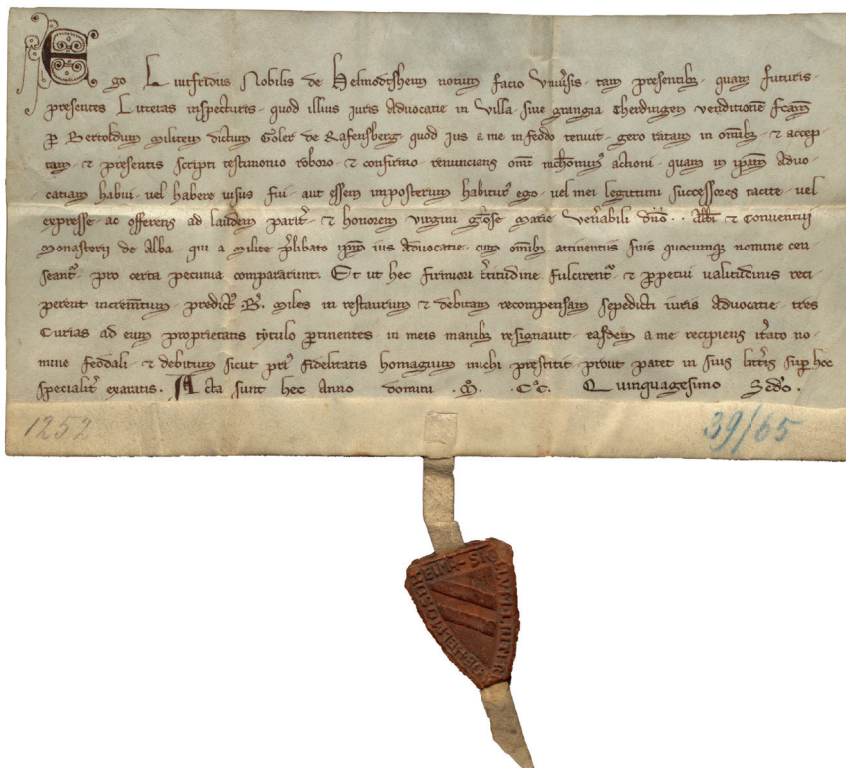 Ego Liutfridus Nobilis de Helmodisheim notum facio Univsis. tam presentibus. quam futuris.
presentes Litteras inspecturis. quod illius iuris Advocatie in villa sive grangia Cherdingen venditionē fcām
p Bertoldum militem dictum Goler de Rafensberg. quod ius a me in feodo tenuit. gero ratam in omībȝ. et accep-
tam. et presentis scripti testimonio roboro. et confirmo. renunciens omī actioni. quam in ipam advo-
catiam habui. vel habere visus fui. aut essem imposterum habitur ego. vel mei legittimi successores tacite. vel
expresse. ac offerens ad laudem parit. et honorem virgini gliose Marie Venabili dno. . Abbi et Conventui
Monasterii de Alba. qui a milite plibato ipm ius advocatie. cum omībȝ attinentiis suis quocumqȝ nomine cen-
seant. pro certa pecunia compararunt. Et ut hec firmiori ctitudine fulcirent. et ppetui valitudinis reci-
perent incremtum. predict B. miles in restaurum et debitam recompensam sepedicti iuris advocatie. tres
Curias ad eum proprietatis tytulo ptinentes in meis manibȝ resignavit. easdem a me recipiens itato no-
mine feodali. et debitum sicut pri fidelitatis homagium michi prestitit. prout patet in suis littis sup hoc
specialit exaratis. Acta sunt hec Anno domini .M. CC. Quinquagesimo Scdo.
1252 39/65